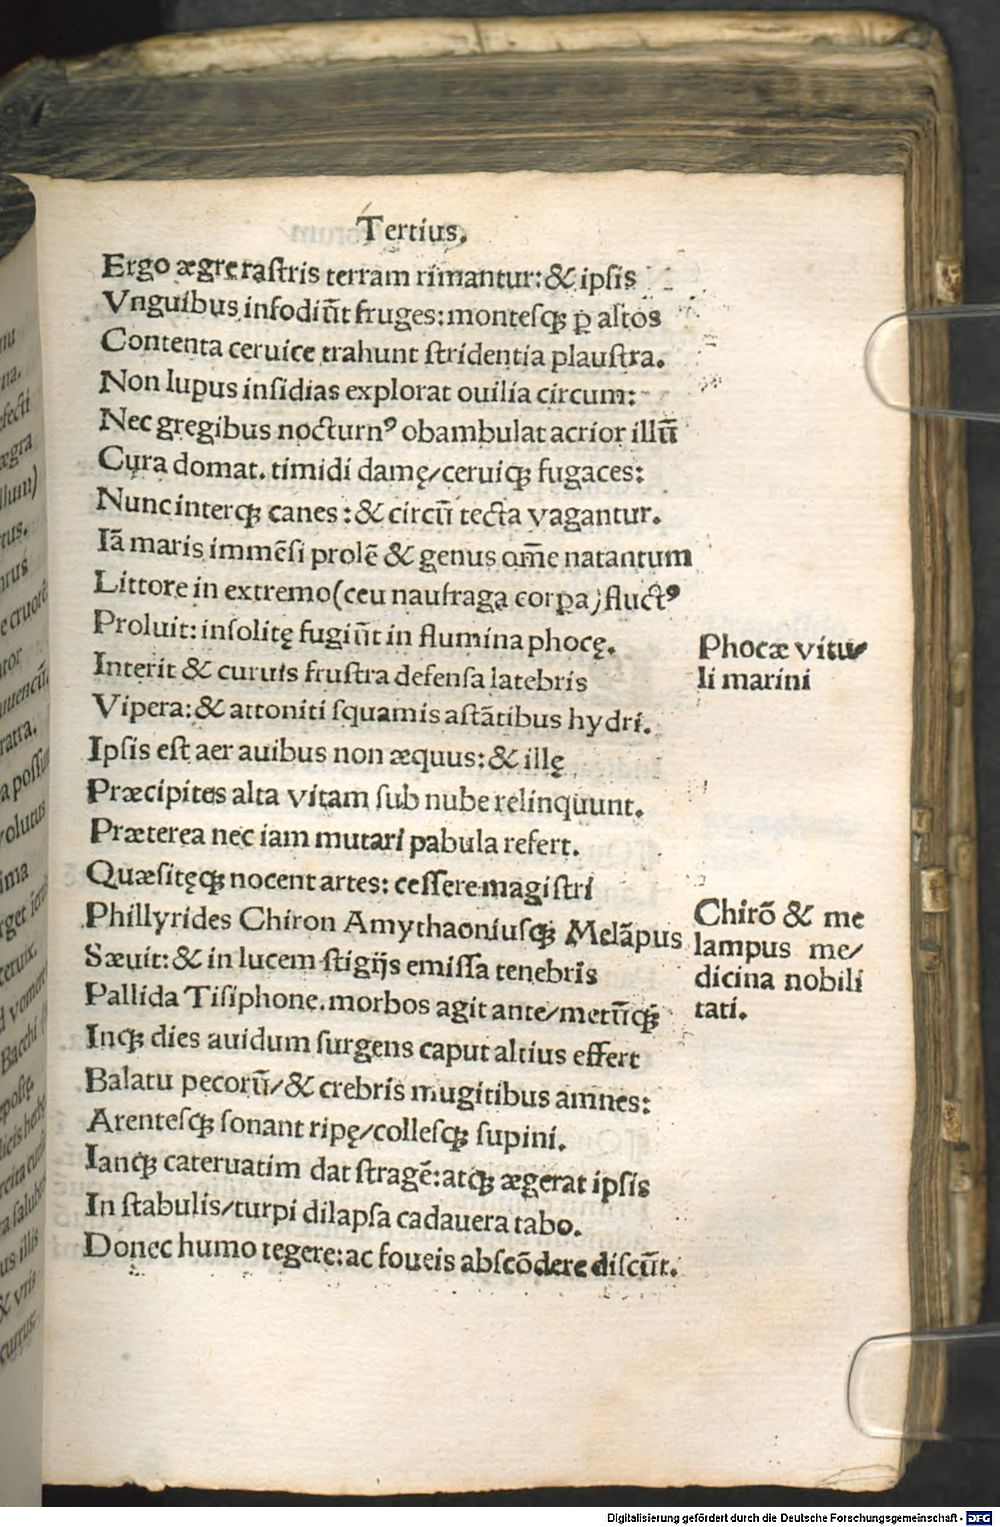 Tertius.
Ergo ægre raſtris terram rimantur: & ipſis
Vnguibus infodiūt fruges: monteſqꝫ ꝑ altos
Contenta ceruice trahunt ſtridentia plauſtra.
Non lupus inſidias explorat ouilia circum:
Nec gregibus nocturnꝰ obambulat acrior illū
Cura domat. timidi damę/ceruiqꝫ fugaces:
Nunc interqꝫ canes: & circū tecta vagantur.
Iā maris immēſi prolē & genus om̄e natantum
Littore in extremo (ceu naufraga corꝑa) fluctꝰ
Proluit: inſolitę fugiūt in flumina phocę.
Interit & curuis fruſtra defenſa latebris
Vipera: & attoniti ſquamis aſtātibus hydri.
Ipſis eſt aer auibus non æquus: & illę
Præcipites alta vitam ſub nube relinquunt.
Præterea nec iam mutari pabula refert.
Quæſitęqꝫ nocent artes: ceſſere magiſtri
Phillyrides Chiron Amythaoniuſqꝫ Melāpus
Sæuit: & in lucem ſtigijs emiſſa tenebris
Pallida Tiſiphone. morbos agit ante/metūqꝫ
Inqꝫ dies auidum ſurgens caput altius effert
Balatu pecorū/& crebris mugitibus amnes:
Arenteſqꝫ ſonant ripę/colleſqꝫ ſupini.
Ianqꝫ cateruatim dat ſtragē: atqꝫ ægerat ipſis
In ſtabulis/turpi dilapſa cadauera tabo.
Donec humo tegere: ac foueis abſcōdere diſcūt.
Phocæ vitu/
li marini
Chirō & me
lampus me/
dicina nobili
tati.
Digitalisierung gefördert durch die Deutsche Forschungsgemeinschaft - DFG